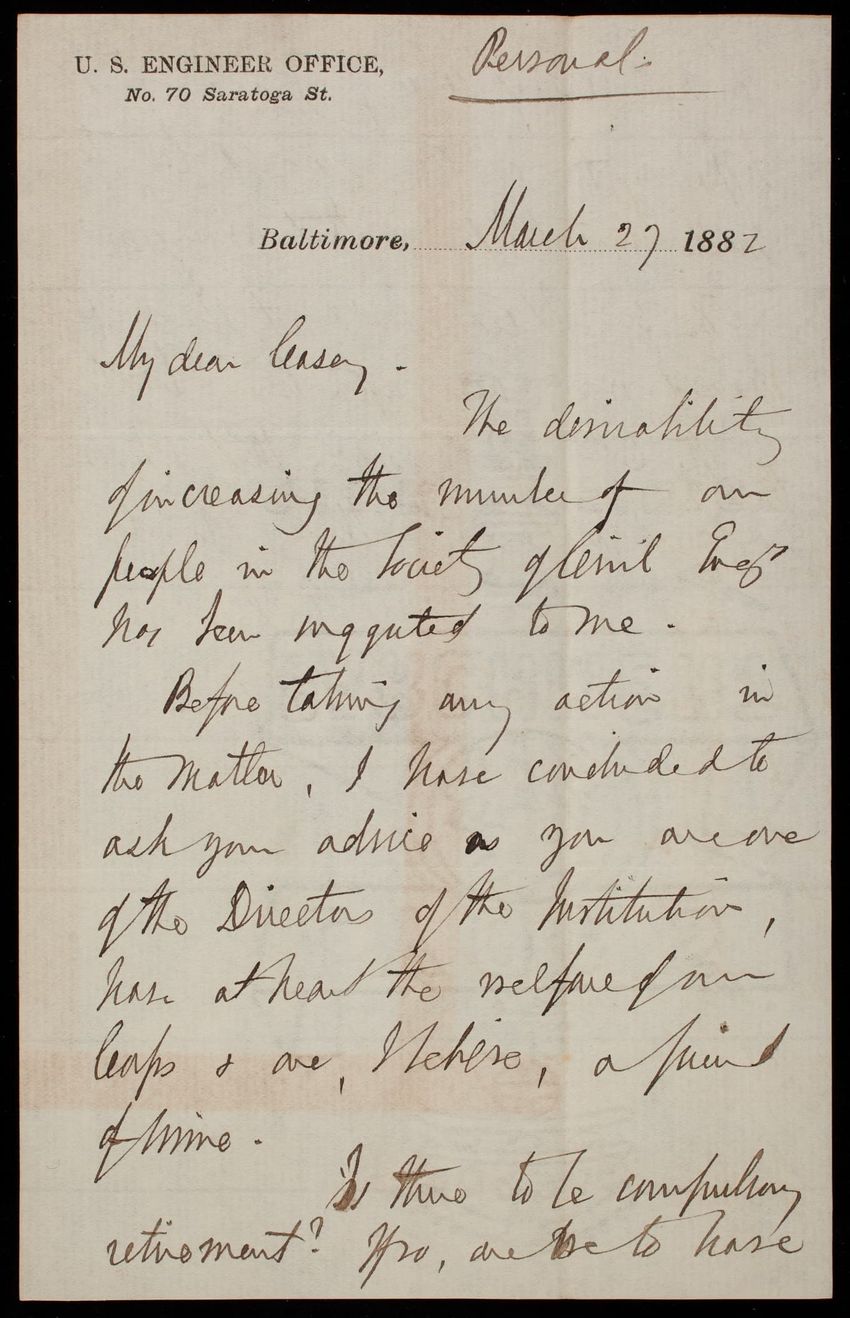 U. S. ENGINEER OFFICE,
No. 70 Saratoga St.
Personal.
Baltimore, March 27 1882
My dear Casey.
The desirability
of increasing the number of our
people in the Society of Civil Engrs
has been suggested to me.
Before taking any action in
the matter, I have concluded to
ask your advice as you are one
of the Directors of the Institution,
have at heart the welfare of our
Corps & are, I believe, a friend
of mine.
Is there to be compulsory
retirement? If so, are we to have